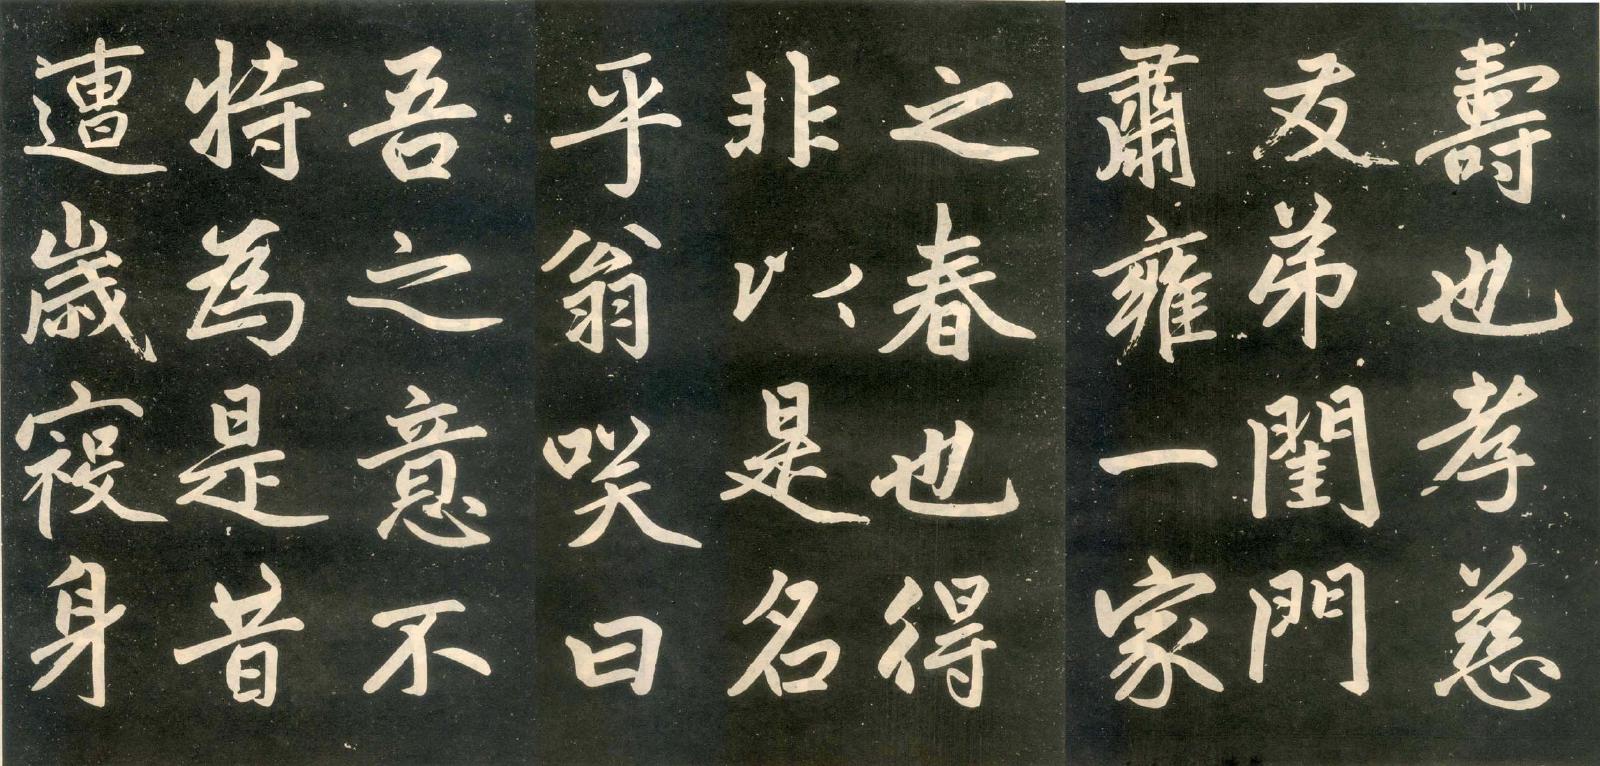 壽也孝慈
友弟閨門
肅雍一家
之春也得
非以是名
乎翁笑曰
吾之意不
特為是昔
遭歲祲身